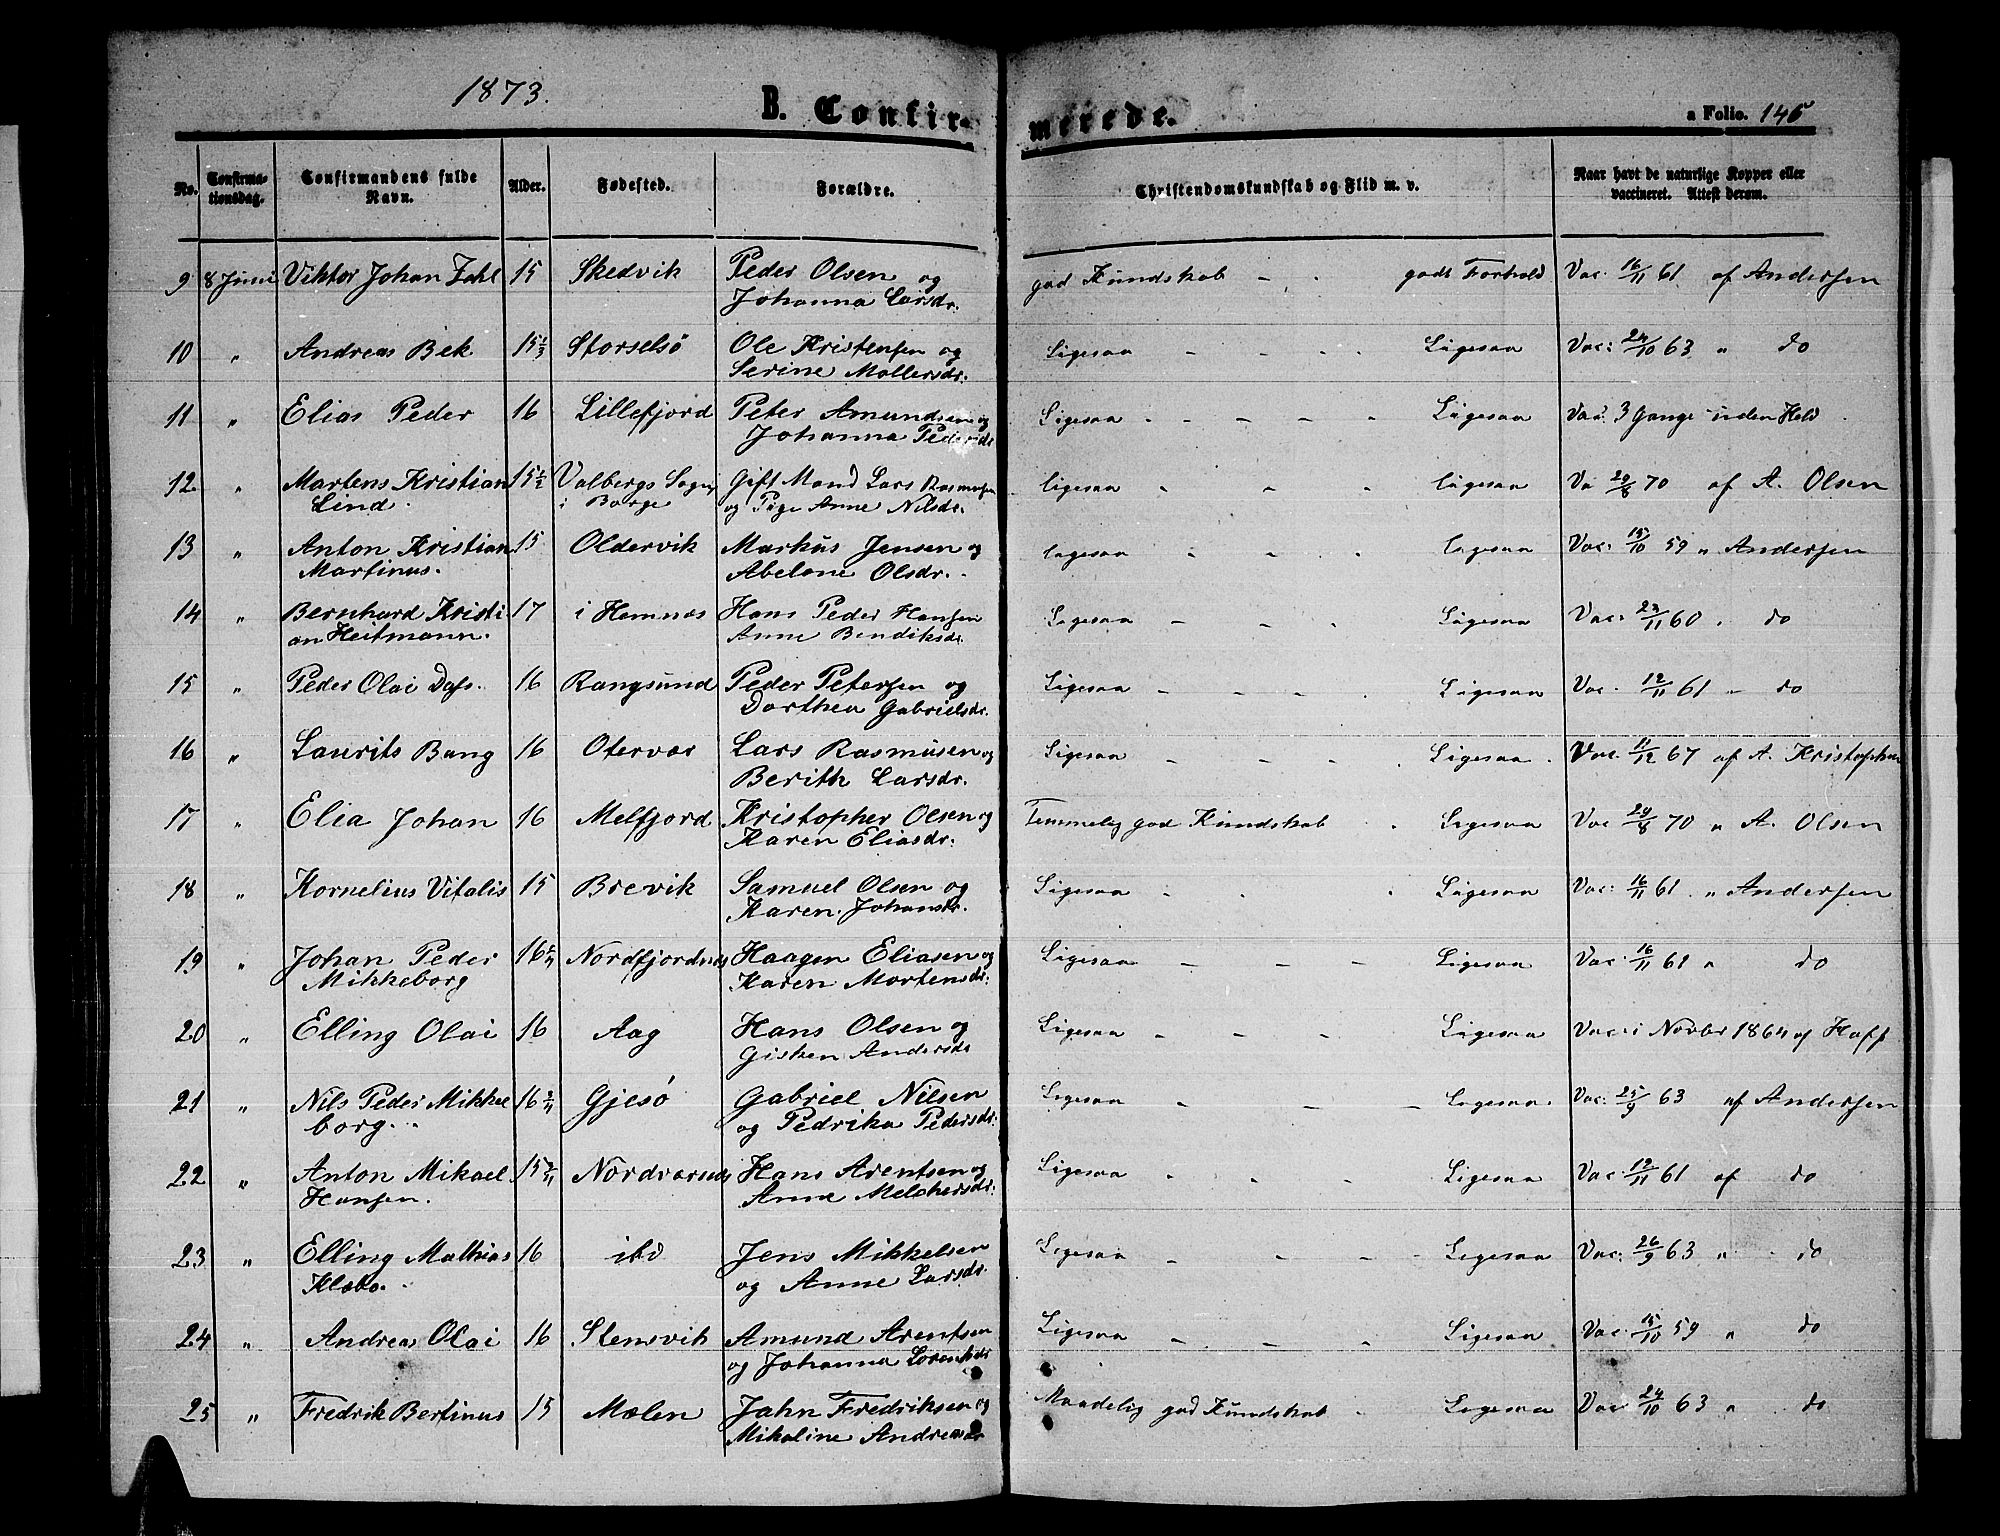 1873.
B. Confir-
merede.
a Folio. 145
No.
Confirma-
tionsdag.
Confirmandens fulde
Navn.
Alder.
Fødested.
Forældre.
Christendomskundskab og Flid m. v.
Naar havt de naturlige Kopper eller
vaccineret. Attest derom.
9 8 Juni Viktor Johan Zahl 15 Skedvik Peder Olsen og god Kundskab - . godt Forhold Vac. 16/11 61 af Andersen
Johanna Larsdr.
10 " Andreas Bek 15 1/3 Storselsö Ole Kristensen og Ligesaa - - . . Ligesaa Vac: 24/10 63 " do
Serine Mollersdr.
11 " Elias Peder 16 Lillefjord Peter Amundsen og Ligesaa - - - - - Ligesaa Vac. 3 Gange uden Held.
Johanna Pedersdr
12 " Martens Kristian 15 1/2 Valbergs Sogn Gift Mand Lars Rasmusen Ligesaa - - - Ligesaa Va 29/8 70 af A. Olsen
Lind. i Borge og Pige Anne Nilsdr.
13 " Anton Kristian 15 Oldervik Markus Jensen og Ligesaa - - - Ligesaa Vac: 15/10 59 " Andersen
Martinus. Abelone Olsdr.
14 " Bernhard Kristi- 17 i Hemnæs Hans Peder Hansen Ligesaa - - . Ligesaa Vac: 23/11 60 . do
an Heitmann. Anne Bendiksdr.
15 " Peder Olai Dass. 16 Rangsund Peder Petersen og Ligesaa - - - - Ligesaa Vac. 12/11 61 " do
Dorthea Gabrielsdr.
16 " Laurits Bang 16 Otervær Lars Rasmusen og Ligesaa - - - Ligesaa . Vac. 11/12 67 af A. Kristophersen
Berith Larsdr.
17 " Elia Johan 16 Melfjord Kristopher Olsen og Temmelig god Kundskab . . Ligesaa Vac 29/8 70 " A. Olsen
Karen Eliasdr.
18 " Kornelius Vitalis 15 Brevik Samuel Olsen og Ligesaa - . . Ligesaa Vac: 16/11 61 . " Andersen
Karen Johansdr.
19 " Johan Peder 16 Nordfjordnæs Haagen Eliasen og Ligesaa - - - - Ligesaa Vac: 16/11 61 " do
Mikkeborg Karen Mortensdr.
20 " Elling Olai 16 Aag Hans Olsen og Ligesaa - - - - Ligesaa Vac: i Novbr 1864 af Hoff
Gisken Andersdr
21 " Nils Peder Mikkel 16 Gjesö Gabriel Nilsen Ligesaa - - - - Ligesaa. Vac: 25/9 63 af Andersen
borg. og Pedrika Pedersdr.
22 " Anton Mikael 15 Nordværnæs Hans Arentsen og Ligesaa - - - Ligesaa Vac: 12/11 61 af do
Hansen. Anne Melchersdr.
23 " Elling Mathias 16 ibd Jens Mikkelsen Ligesaa - - - Ligesaa Vac: 26/9 63 " do
Klæbo. og Anne Larsdr.
24 " Andreas Olai 16 Stensvik Amund Arentsen Ligesaa - - - Ligesaa Vac: 15/10 59 " do
og Johanna Lorentsdr
25 " Fredrik Bertinus 15 Mælen Jahn Fredriksen og Maadelig god Kundskab . Ligesaa Vac 24/10 63 " do
Mikaline Andreasdr